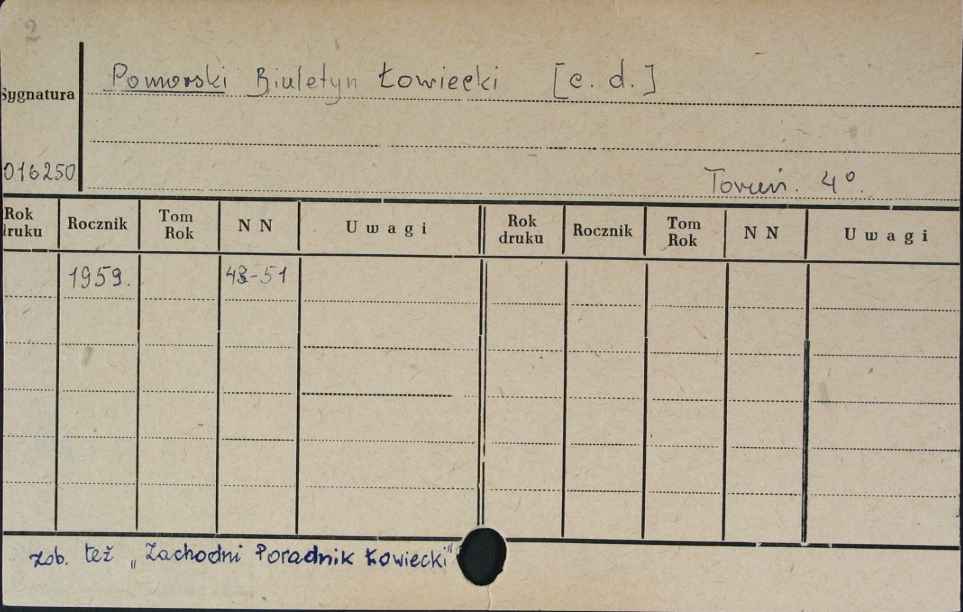 2
Pomorski Biuletyn Łowiecki [c. d.]
Sygnatura
016250
Toruń. 4°.
Rok druku Rocznik Tom Rok N N Uwagi Rok druku Rocznik Tom Rok N N Uwagi
1959. 48-51
zob. też „Zachodni Poradnik Łowiecki"